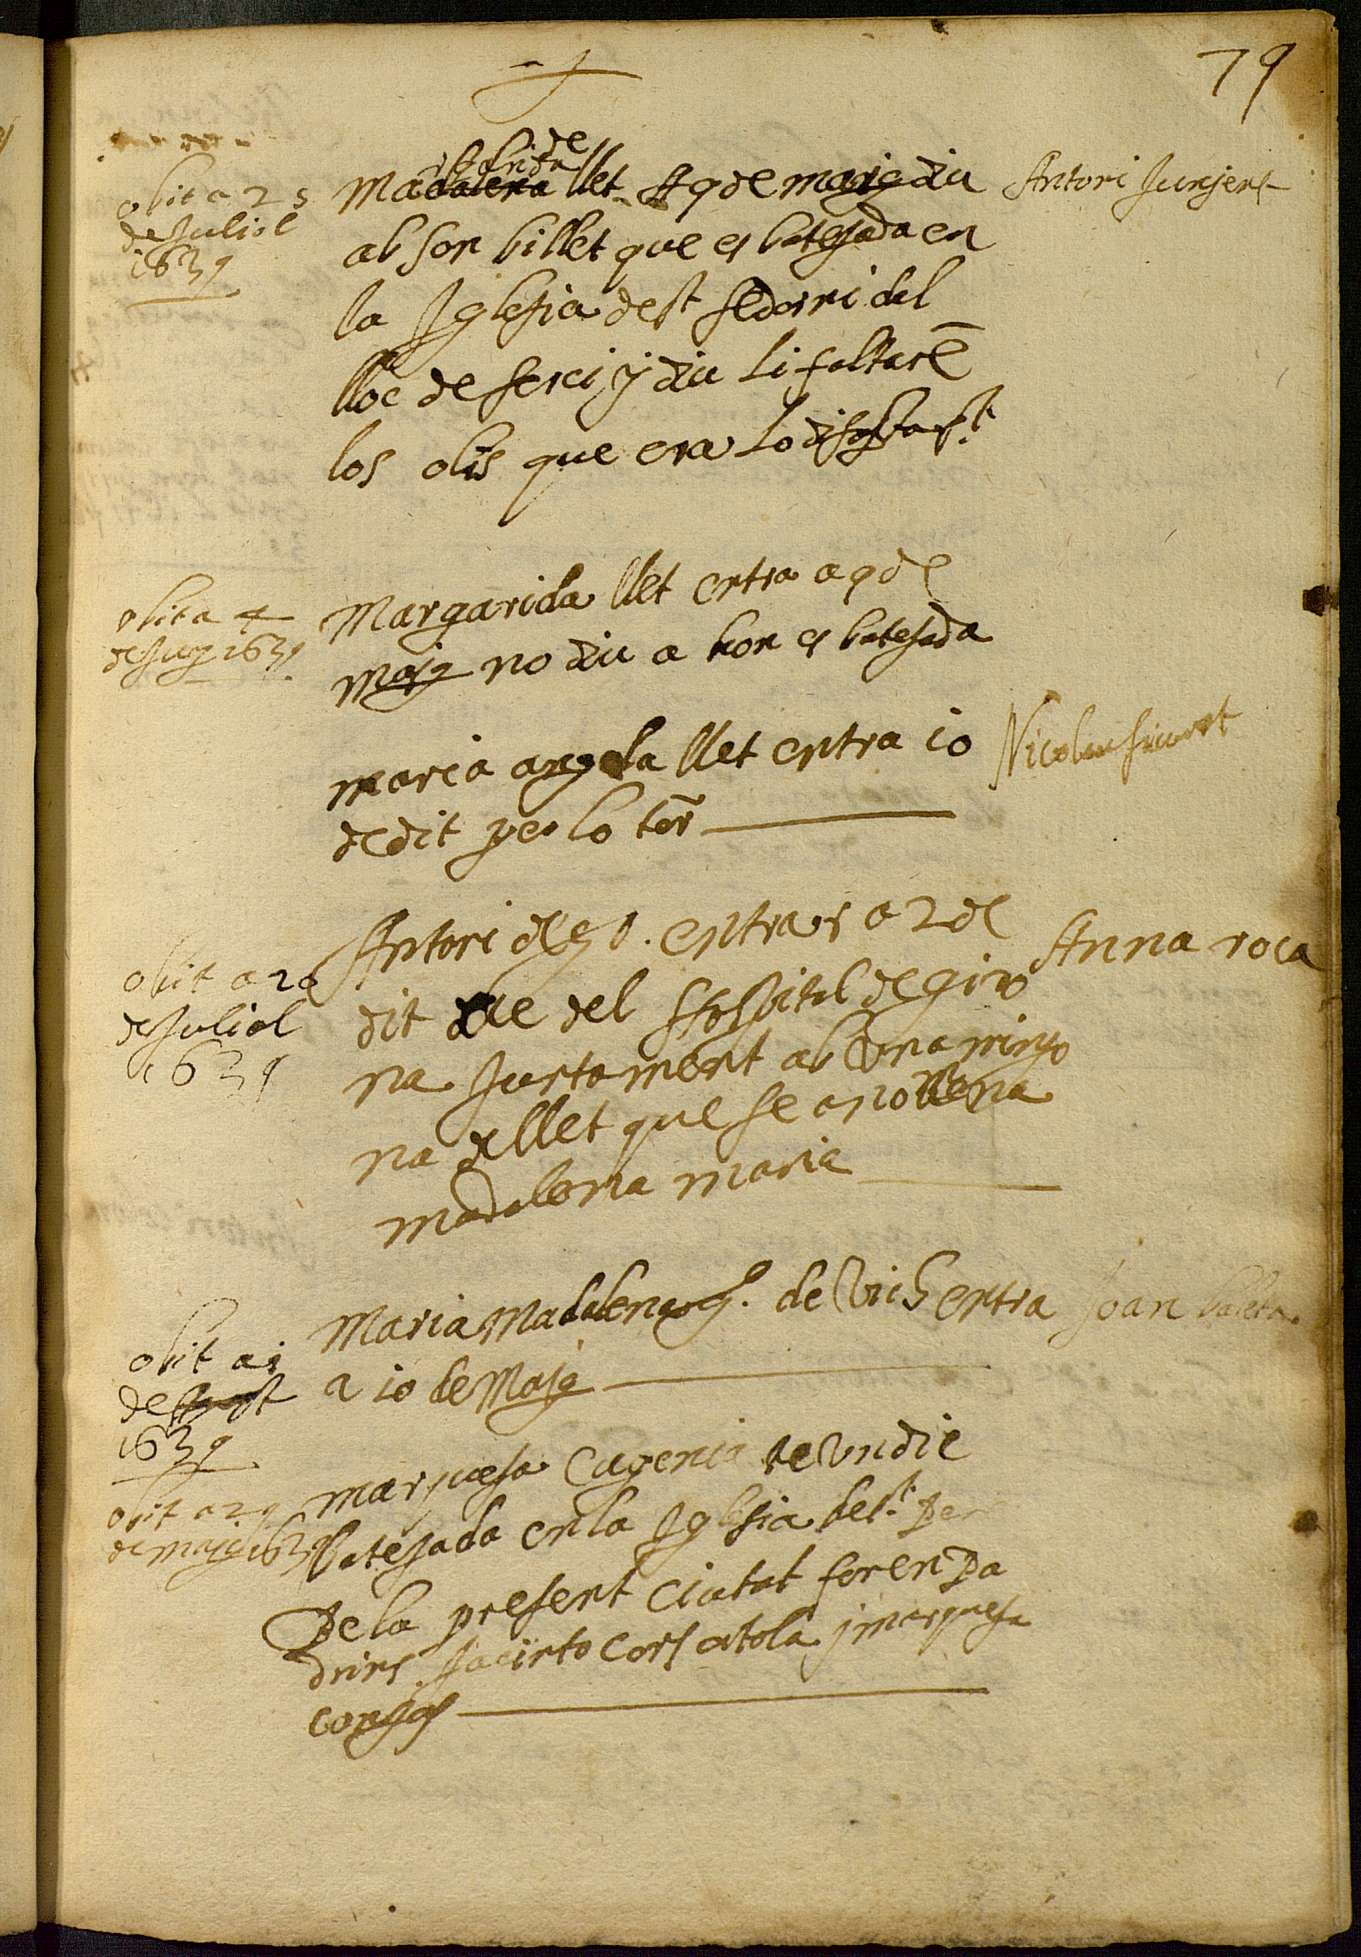 79
obit a 25
de Juliol
1639
de
Madalena llet A 9 de maig diu
ab son billet que es batejada en
la Iglesia de st sedorni del
lloc de serci y diu li faltarē
los olis que era lo
Antoni Junjent
obit a 4
de Juny 1639
Margarida llet entra a 9 de
maig no diu a hon es batejada
maria angela llet entra 10
de dit per lo tōr
Nicolau
obit a 20
de Juliol
1639
Antori entrar a 2 de
dit die del Hospital de giro
na Juntament ab una minyo
na de llet que se anomena
madalena maria
Anna roca
obit a 1
de Agost
1639
Maria Madalena de Vich entra
a 10 de Maig
Joan
obit a 29
de maig 1639
marquesa Eugenia de un die
batejada en la Iglesia de st. Per
De la present Ciutat foren Pa
drins Jacinto Cors atola y marquesa